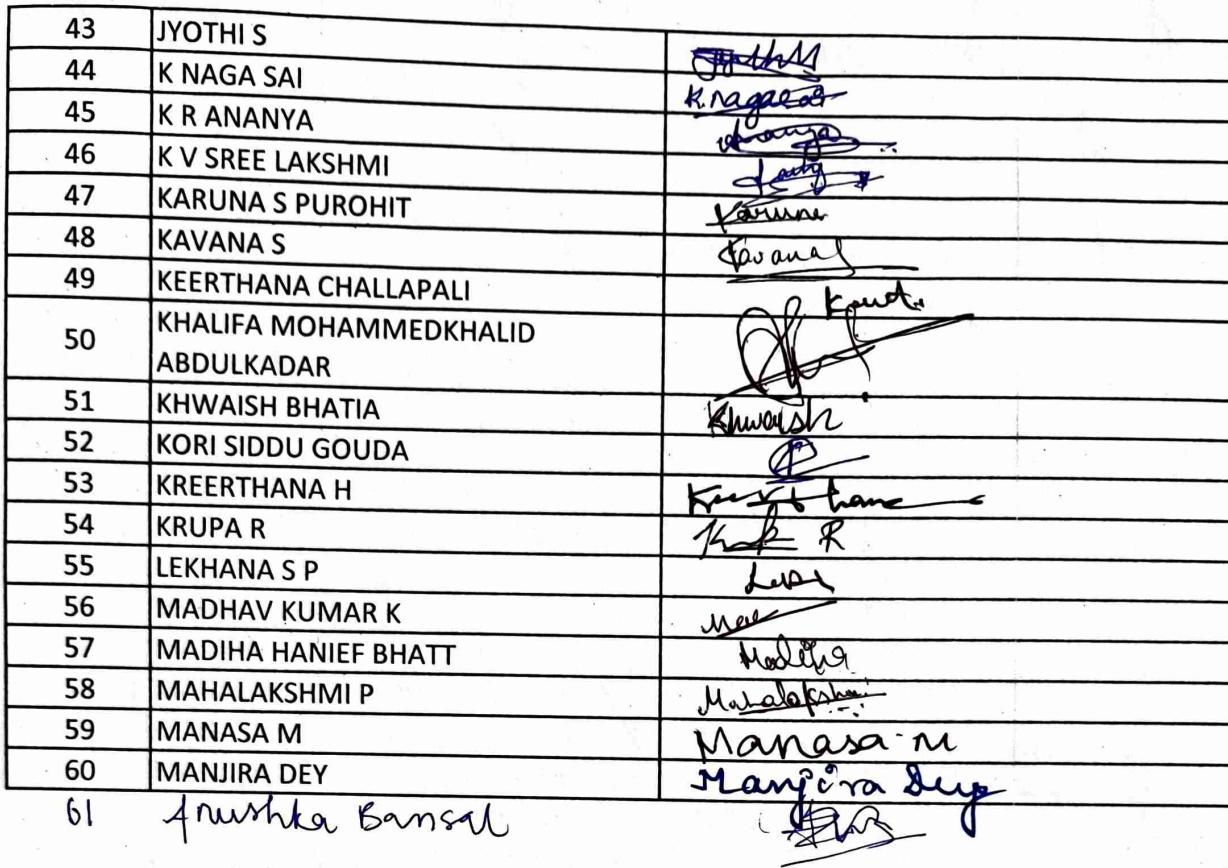 43 JYOTHI S
44 K NAGA SAI K.nagasai
45 K R ANANYA Ananya
46 K V SREE LAKSHMI
47 KARUNA S PUROHIT Karuna
48 KAVANA S KavanaS
49 KEERTHANA CHALLAPALI
50 KHALIFA MOHAMMEDKHALID
ABDULKADAR
51 KHWAISH BHATIA Khwaish
52 KORI SIDDU GOUDA
53 KREERTHANA H
54 KRUPA R R
55 LEKHANA S P
56 MADHAV KUMAR K
57 MADIHA HANIEF BHATT Madiha
58 MAHALAKSHMI P Mahalakshmi
59 MANASA M Manasa M
60 MANJIRA DEY Manjira Dey
61 Anushka Bansal